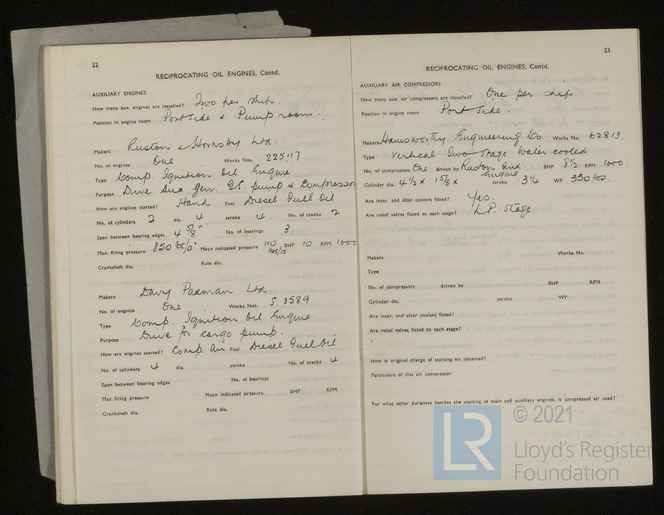 22
RECIPROCATING OIL ENGINES, Contd.
AUXILIARY ENGINES
How many aux. engines are installed? Two per ship.
Position in engine room Port side & Pump room.
Makers Ruston & Hornsby Ltd.
No. of engines One Works Nos. 225117
Type Comp. Ignition Oil Engine
Purpose Drive aux gen. G.S. pump & Compressor
How are engines started? Hand Fuel Diesel Fuel Oil
No. of cylinders 2 dia. 4 stroke 4 No. of cranks 2
Span between bearing edges 4 5/8" No. of bearings 3.
Max. firing pressure 850 lbs/□" Mean indicated pressure 110 lbs/□" BHP 10 RPM 1000
Crankshaft dia. Rule dia.
Makers Davy Paxman Ltd.
No. of engines One Works Nos. S. 3589
Type Comp. Ignition Oil Engine
Purpose Drive for cargo pump.
How are engines started? Comp. Air Fuel Diesel Fuel Oil
No. of cylinders 4 dia. stroke No. of cranks 4
Span between bearing edges No. of bearings
Max. firing pressure Mean indicated pressure BHP RPM
Crankshaft dia. Rule dia.
23
RECIPROCATING OIL ENGINES, Contd.
AUXILIARY AIR COMPRESSORS
How many aux. air compressors are installed? One per ship
Position in engine room Port Side.
Makers Hamworthy Engineering Co Works No. 62813.
Type Vertical Two Stage Water cooled
No. of compressors One driven by Ruston aux engine BHP 8½ RPM 1000.
Cylinder dia. 4½ x 1 5/8 x stroke 3¼ WP 350 lbs.
Are inter. and after coolers fitted? Yes.
Are relief valves fitted to each stage? L.P. Stage.
Makers Works No.
Type
No. of compressors driven by BHP RPM
Cylinder dia. stroke WP
Are inter. and after coolers fitted?
Are relief valves fitted to each stage?
How is original charge of starting air obtained?
Particulars of this air compressor
For what other purposes besides the starting of main and auxiliary engines, is compressed air used?
LR
© 2021
Lloyd's Register
Foundation